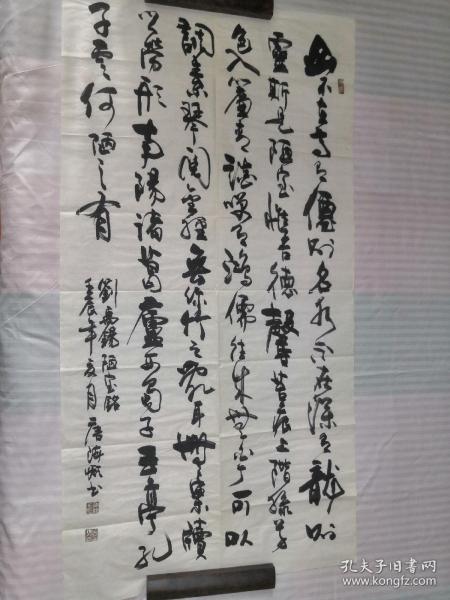 山不在高有僊则名水不在深有龍则
靈斯是陋室惟吾德馨苔痕上階绿草
色入簾青谈笑有鴻儒往来無白丁可以
調素琴阅金經無丝竹之亂耳無案牘
之勞形南陽諸葛廬西蜀子云亭孔
子云何陋之有
劉禹錫陋室銘
壬辰年夏月唐海
书
孔夫子旧书网
www.kongfz.com